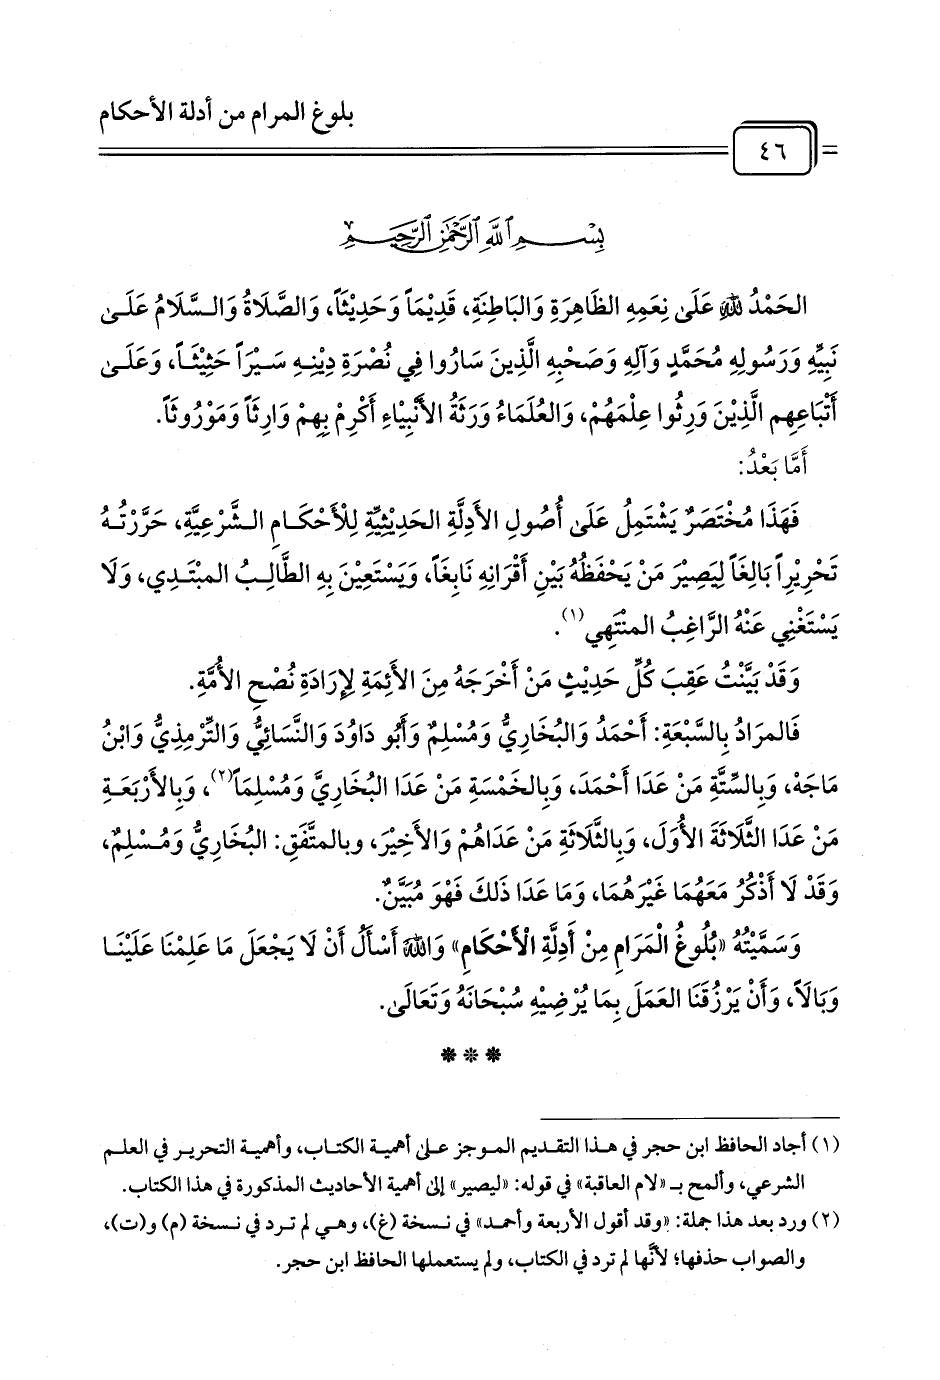 بلوغ المرام من أدلة الأحكام
٤٦
بِسْمِ اللَّهِ الرَّحْمَٰنِ الرَّحِيمِ
الحَمْدُ للهِ عَلَى نِعَمِهِ الظَّاهِرَةِ وَالبَاطِنَةِ، قَدِيْمَاً وَحَدِيْثَاً، وَالصَّلَاةُ وَالسَّلَامُ عَلَى
نَبِيِّهِ وَرَسُولِهِ مُحَمَّدٍ وَآلِهِ وَصَحْبِهِ الَّذِيْنَ سَارُوا فِي نُصْرَةِ دِيْنِهِ سَيْرَاً حَثِيْثَاً، وَعَلَى
أَتْبَاعِهِم الَّذِيْنَ وَرِثُوا عِلْمَهُمْ، وَالعُلَمَاءُ وَرَثَةُ الأَنْبِيَاءِ أَكْرِمْ بِهِمْ وَارِثَاً وَمَوْرُوثَاً.
أَمَّا بَعْدُ:
فَهَذَا مُخْتَصَرٌ يَشْتَمِلُ عَلَى أُصُولِ الأَدِلَّةِ الحَدِيْثِيَّةِ لِلْأَحْكَامِ الشَّرْعِيَّةِ، حَرَّرْتُهُ
تَحْرِيْرِاً بَالِغَاً لِيَصِيْرَ مَنْ يَحْفَظُهُ بَيْنِ أَقْرَانِهِ نَابِغَاً، وَيَسْتَعِيْنَ بِهِ الطَّالِبُ المبْتَدِي، وَلَا
يَسْتَغْنِي عَنْهُ الرَّاغِبُ المنْتَهِي(١).
وَقَدْ بَيَّنْتُ عَقِبَ كُلِّ حَدِيْثٍ مَنْ أَخْرَجَهُ مِنَ الأَئِمَةِ لِإِرَادَةِ نُصْحِ الأُمَّةِ.
فَالمرَادُ بِالسَّبْعَةِ: أَحْمَدُ وَالبُخَارِيُّ وَمُسْلِمٌ وَأَبُو دَاوُدَ وَالنَّسَائِيُّ وَالتِّرْمِذِيُّ وَابْنُ
مَاجَهْ، وَبِالسِّتَّةِ مَنْ عَدَا أَحْمَدَ، وَبِالخَمْسَةِ مَنْ عَدَا البُخَارِيَّ وَمُسْلِمَاً(٢)، وَبِالأَرْبَعَةِ
مَنْ عَدَا الثَّلَاثَةَ الأُوَلَ، وَبِالثَّلَاثَةِ مَنْ عَدَاهُمْ وَالأَخِيْرَ، وبِالمتَّفَقِ: البُخَارِيُّ وَمُسْلِمٌ،
وَقَدْ لَا أَذْكُرُ مَعَهُمَا غَيْرَهُمَا، وَمَا عَدَا ذَلكَ فَهْوَ مُبَيَّنٌ.
وَسَمَّيْتُهُ «بُلُوغُ الْمَرَامِ مِنْ أَدِلَّةِ الْأَحْكَامِ» وَاللهَ أَسْأَلُ أَنْ لَا يَجْعَلَ مَا عَلِمْنَا عَلَيْنَا
وَبَالَاً، وَأَنْ يَرْزُقَنَا العَمَلَ بِمَا يُرْضِيْهِ سُبْحَانَهُ وَتَعَالَى.
***
(١) أجاد الحافظ ابن حجر في هذا التقديم الموجز على أهمية الكتاب، وأهمية التحرير في العلم
الشرعي، وألمح بـ «لام العاقبة» في قوله: «ليصير» إلى أهمية الأحاديث المذكورة في هذا الكتاب.
(٢) ورد بعد هذا جملة: «وقد أقول الأربعة وأحمد» في نسخة (غ)، وهي لم ترد في نسخة (م) و(ت)،
والصواب حذفها؛ لأنَّها لم ترد في الكتاب، ولم يستعملها الحافظ ابن حجر.